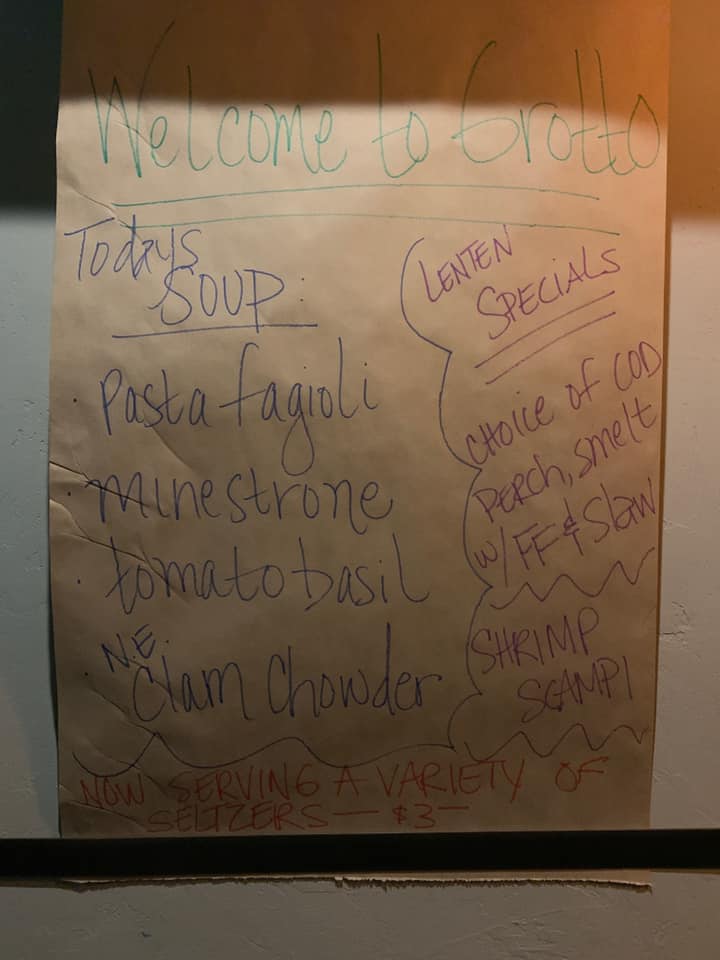 Welcome to Grotto
Todays
SOUP:
· Pasta fagioli
· minestrone
· tomato basil
· N.E.
Clam Chowder
LENTEN
SPECIALS
CHOICE OF COD
PERCH, smelt
w/ FF & Slaw
SHRIMP
SCAMPI
NOW SERVING A VARIETY OF
SELTZERS — $3 —